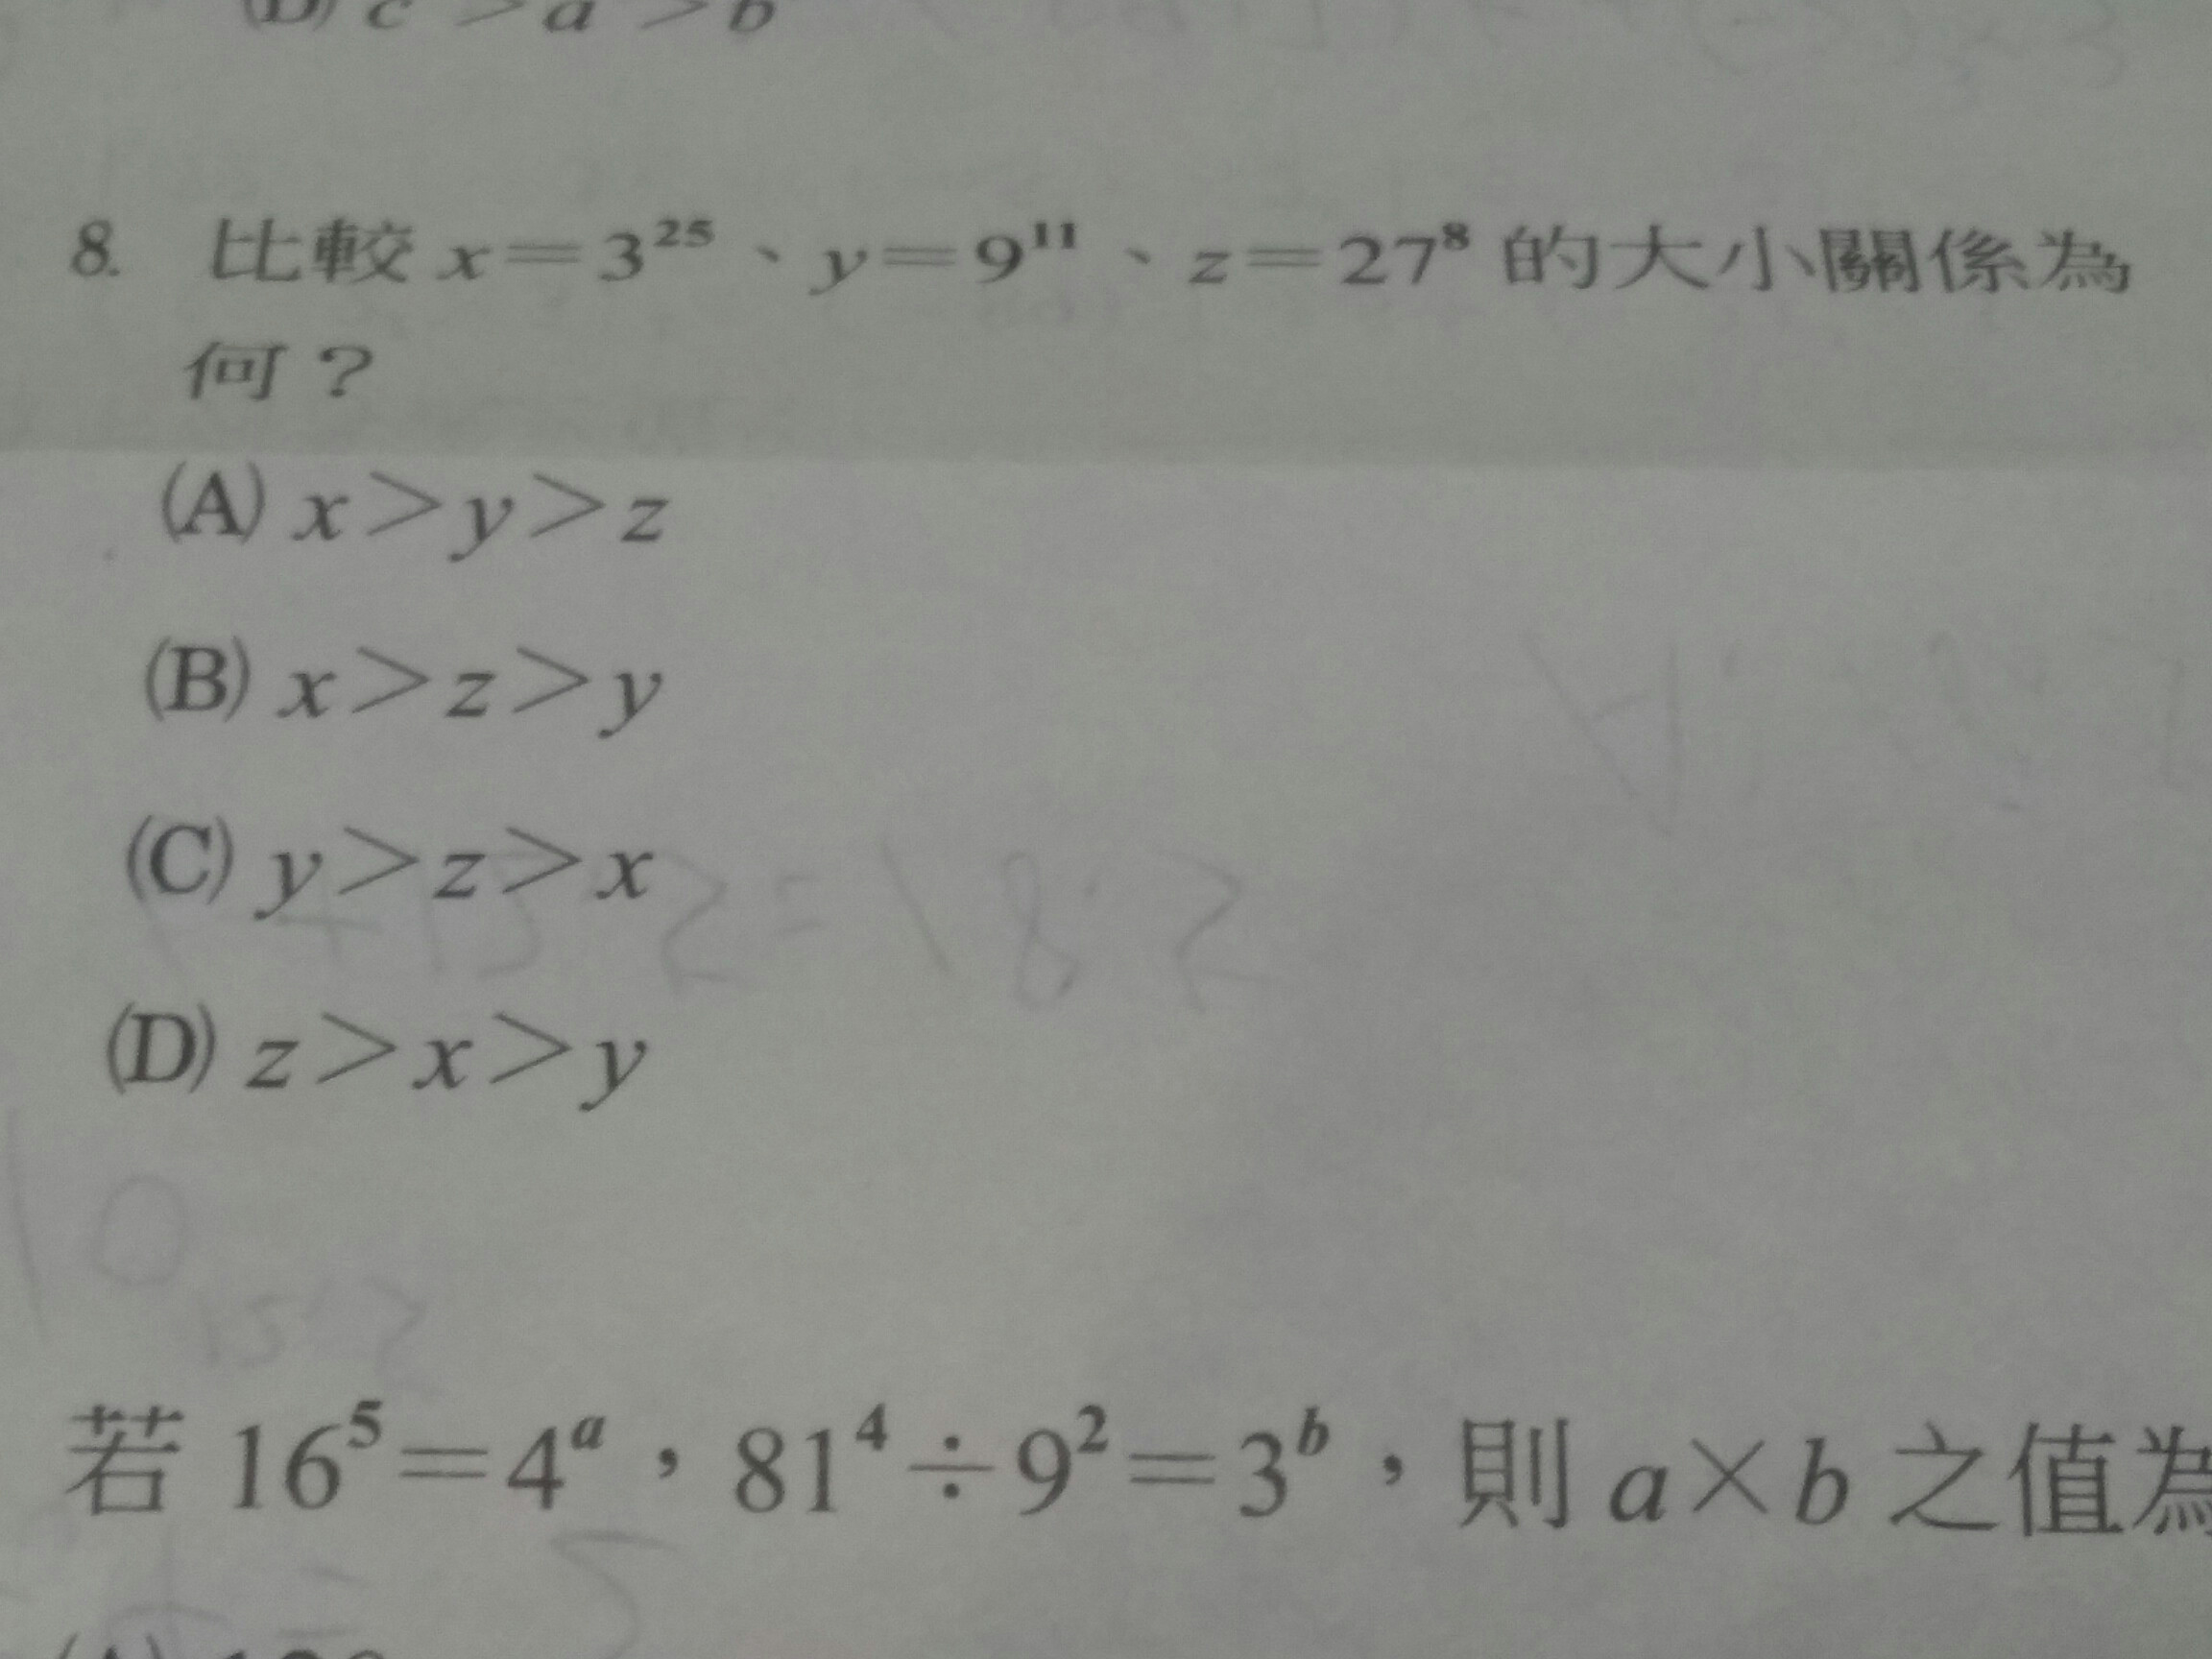 (D) c > a > b
8. 比較 x=3²⁵、y=9¹¹、z=27⁸ 的大小關係為
何？
(A) x>y>z
(B) x>z>y
(C) y>z>x
(D) z>x>y
若 16⁵=4ᵃ，81⁴÷9²=3ᵇ，則 a×b 之值為